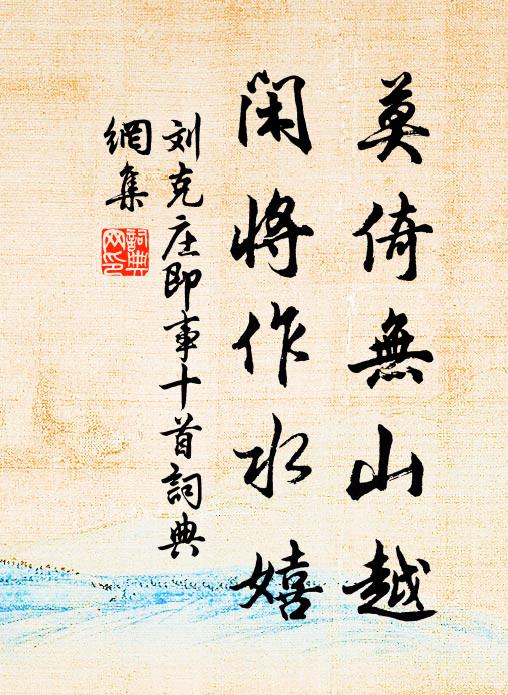 莫倚無山越
閑將作水嬉
刘克庄即事十首詞典
網集
詞典
网印